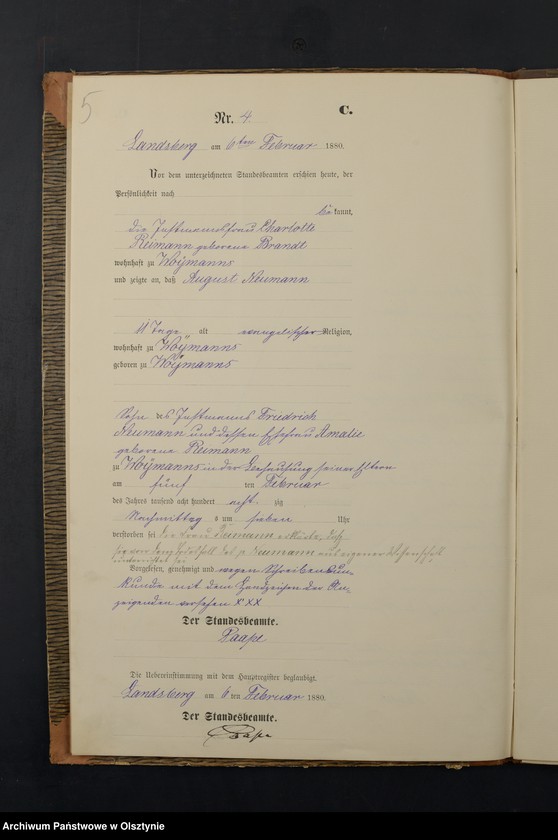 5
C.
Nr. 4.
Landsberg am 6ten Februar 1880.
Vor dem unterzeichneten Standesbeamten erschien heute, der
Persönlichkeit nach
bekannt,
die Instmannsfrau Charlotte
Reimann geborene Brandt
wohnhaft zu Woymanns
und zeigte an, daß August Neumann
11 Tage alt evangelischer Religion,
wohnhaft zu Woymanns
geboren zu Woymanns
Sohn des Instmanns Friedrich
Neumann und dessen Ehefrau Amalie
geborene Reimann
zu Woymanns in der Behausung seiner Eltern
am fünf ten Februar
des Jahres tausend acht hundert acht zig
Nachmittag s um sieben Uhr
verstorben sei die Frau Reimann erklärte, daß
sie von dem Todesfall des p. Neumann aus eigener Wissenschaft
unterrichtet sei
Vorgelesen, genehmigt und wegen Schreibensun-
kunde mit dem Handzeichen der An-
zeigenden versehen XXX
Der Standesbeamte.
Paape
Die Uebereinstimmung mit dem Hauptregister beglaubigt.
Landsberg am 6 ten Februar 1880.
Der Standesbeamte.
Paape
Archiwum Państwowe w Olsztynie